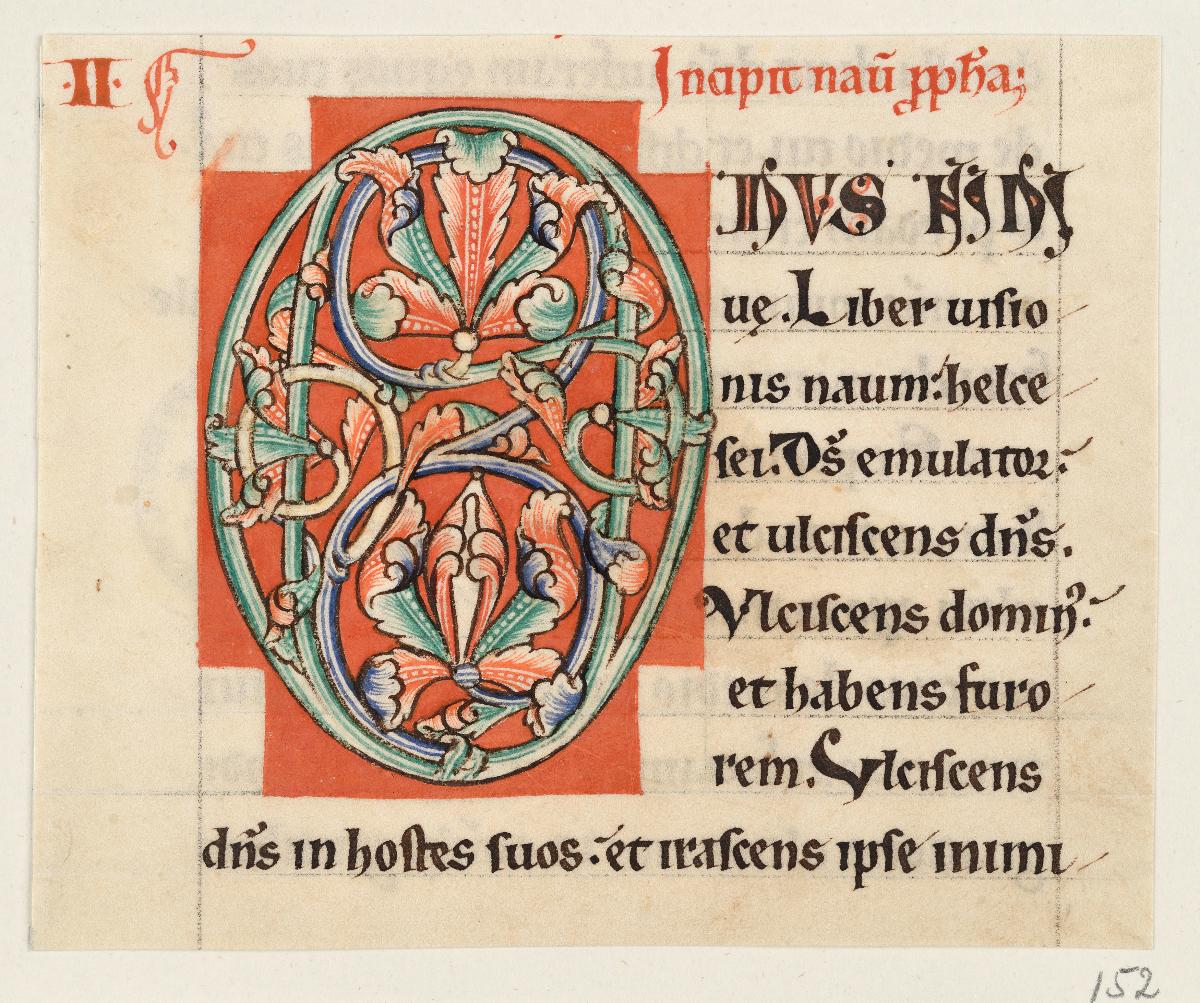 ·II· Incipit naū ꝓph̄a;
ONVS NINI
uę. Liber uisio
nis naum: helce
sei. Ds̄ emulator:
et ulciscens dn̄s.
Vlciscens domin᷒:
et habens furo
rem. Vlciscens
dn̄s in hostes suos: et irascens ipse inimi
152